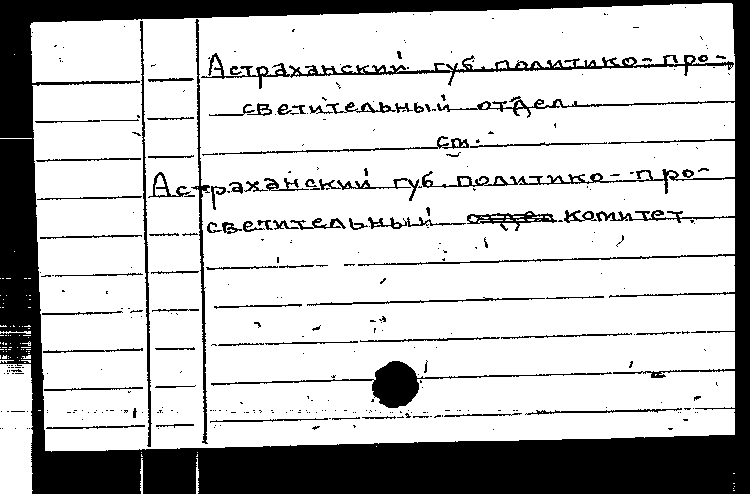 Астраханский губ. политико-про-
светительный отдел.
см.
Астраханский губ. политико-про-
светительный отдел комитет.